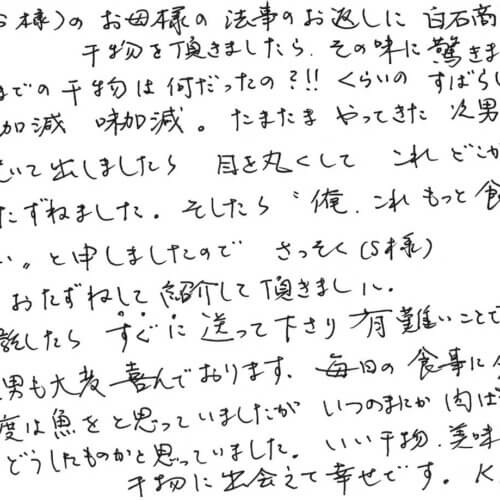 S様)の お母様の 法事のお返しに 白石商
干物を頂きましたら、その味に驚きま
までの干物は何だったの?!! くらいの すばらし
加減 味加減。たまたま やってきた 次男
いて出しましたら 目を丸くして これ どこか
たずねました。そしたら〝俺、これ もっと 食
い〟と申しましたので さっそく(S様)
おたずねして 紹介して頂きまし
話したら すぐに 送って下さり 有難いことで
男も大変 喜んでおります。毎日の 食事に
度は魚をと思っていましたが いつのまにか 肉ば
どうしたものかと思っていました。いい干物、美味
干物に出会えて幸せです。K